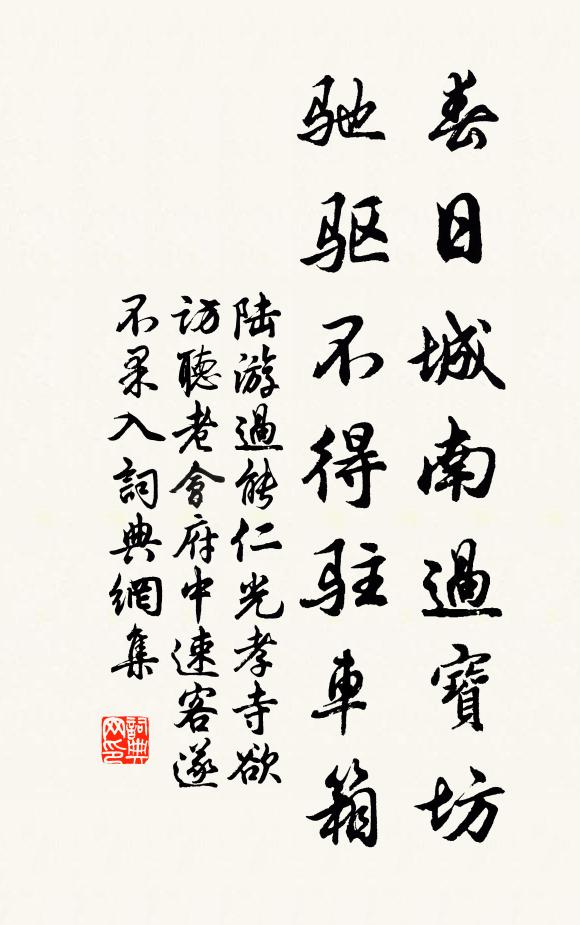 春日城南過寶坊
驰驱不得駐車箱
陆游過能仁光孝寺欲
访聽老會府中速客遂
不果入詞典網集
詞典
网印